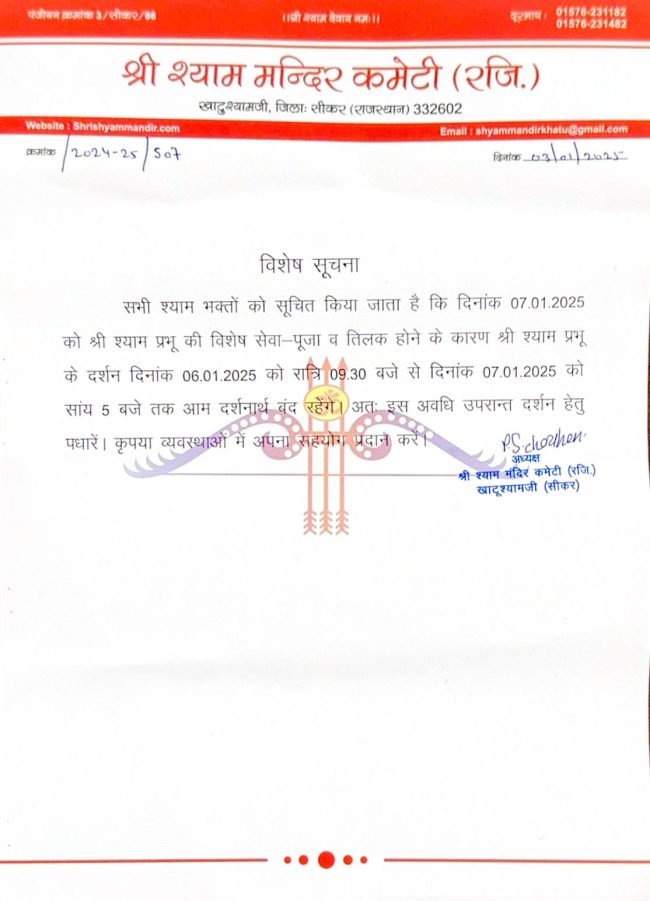 पंजीयन क्रमांक 3/सीकर/86
।।श्री श्याम देवाय नमः।।
दूरभाष : 01576-231182
01576-231482
श्री श्याम मन्दिर कमेटी (रजि.)
खाटूश्यामजी, जिलाः सीकर (राजस्थान) 332602
Website : Shrishyammandir.com
Email : shyammandirkhatu@gmail.com
क्रमांक /2024-25/507
दिनांक 03/01/2025
विशेष सूचना
सभी श्याम भक्तों को सूचित किया जाता है कि दिनांक 07.01.2025
को श्री श्याम प्रभू की विशेष सेवा–पूजा व तिलक होने के कारण श्री श्याम प्रभू
के दर्शन दिनांक 06.01.2025 को रात्रि 09.30 बजे से दिनांक 07.01.2025 को
सांय 5 बजे तक आम दर्शनार्थ बंद रहेंगे। अतः इस अवधि उपरान्त दर्शन हेतु
पधारें। कृपया व्यवस्थाओं में अपना सहयोग प्रदान करें।
अध्यक्ष
श्री श्याम मंदिर कमेटी (रजि.)
खाटूश्यामजी (सीकर)